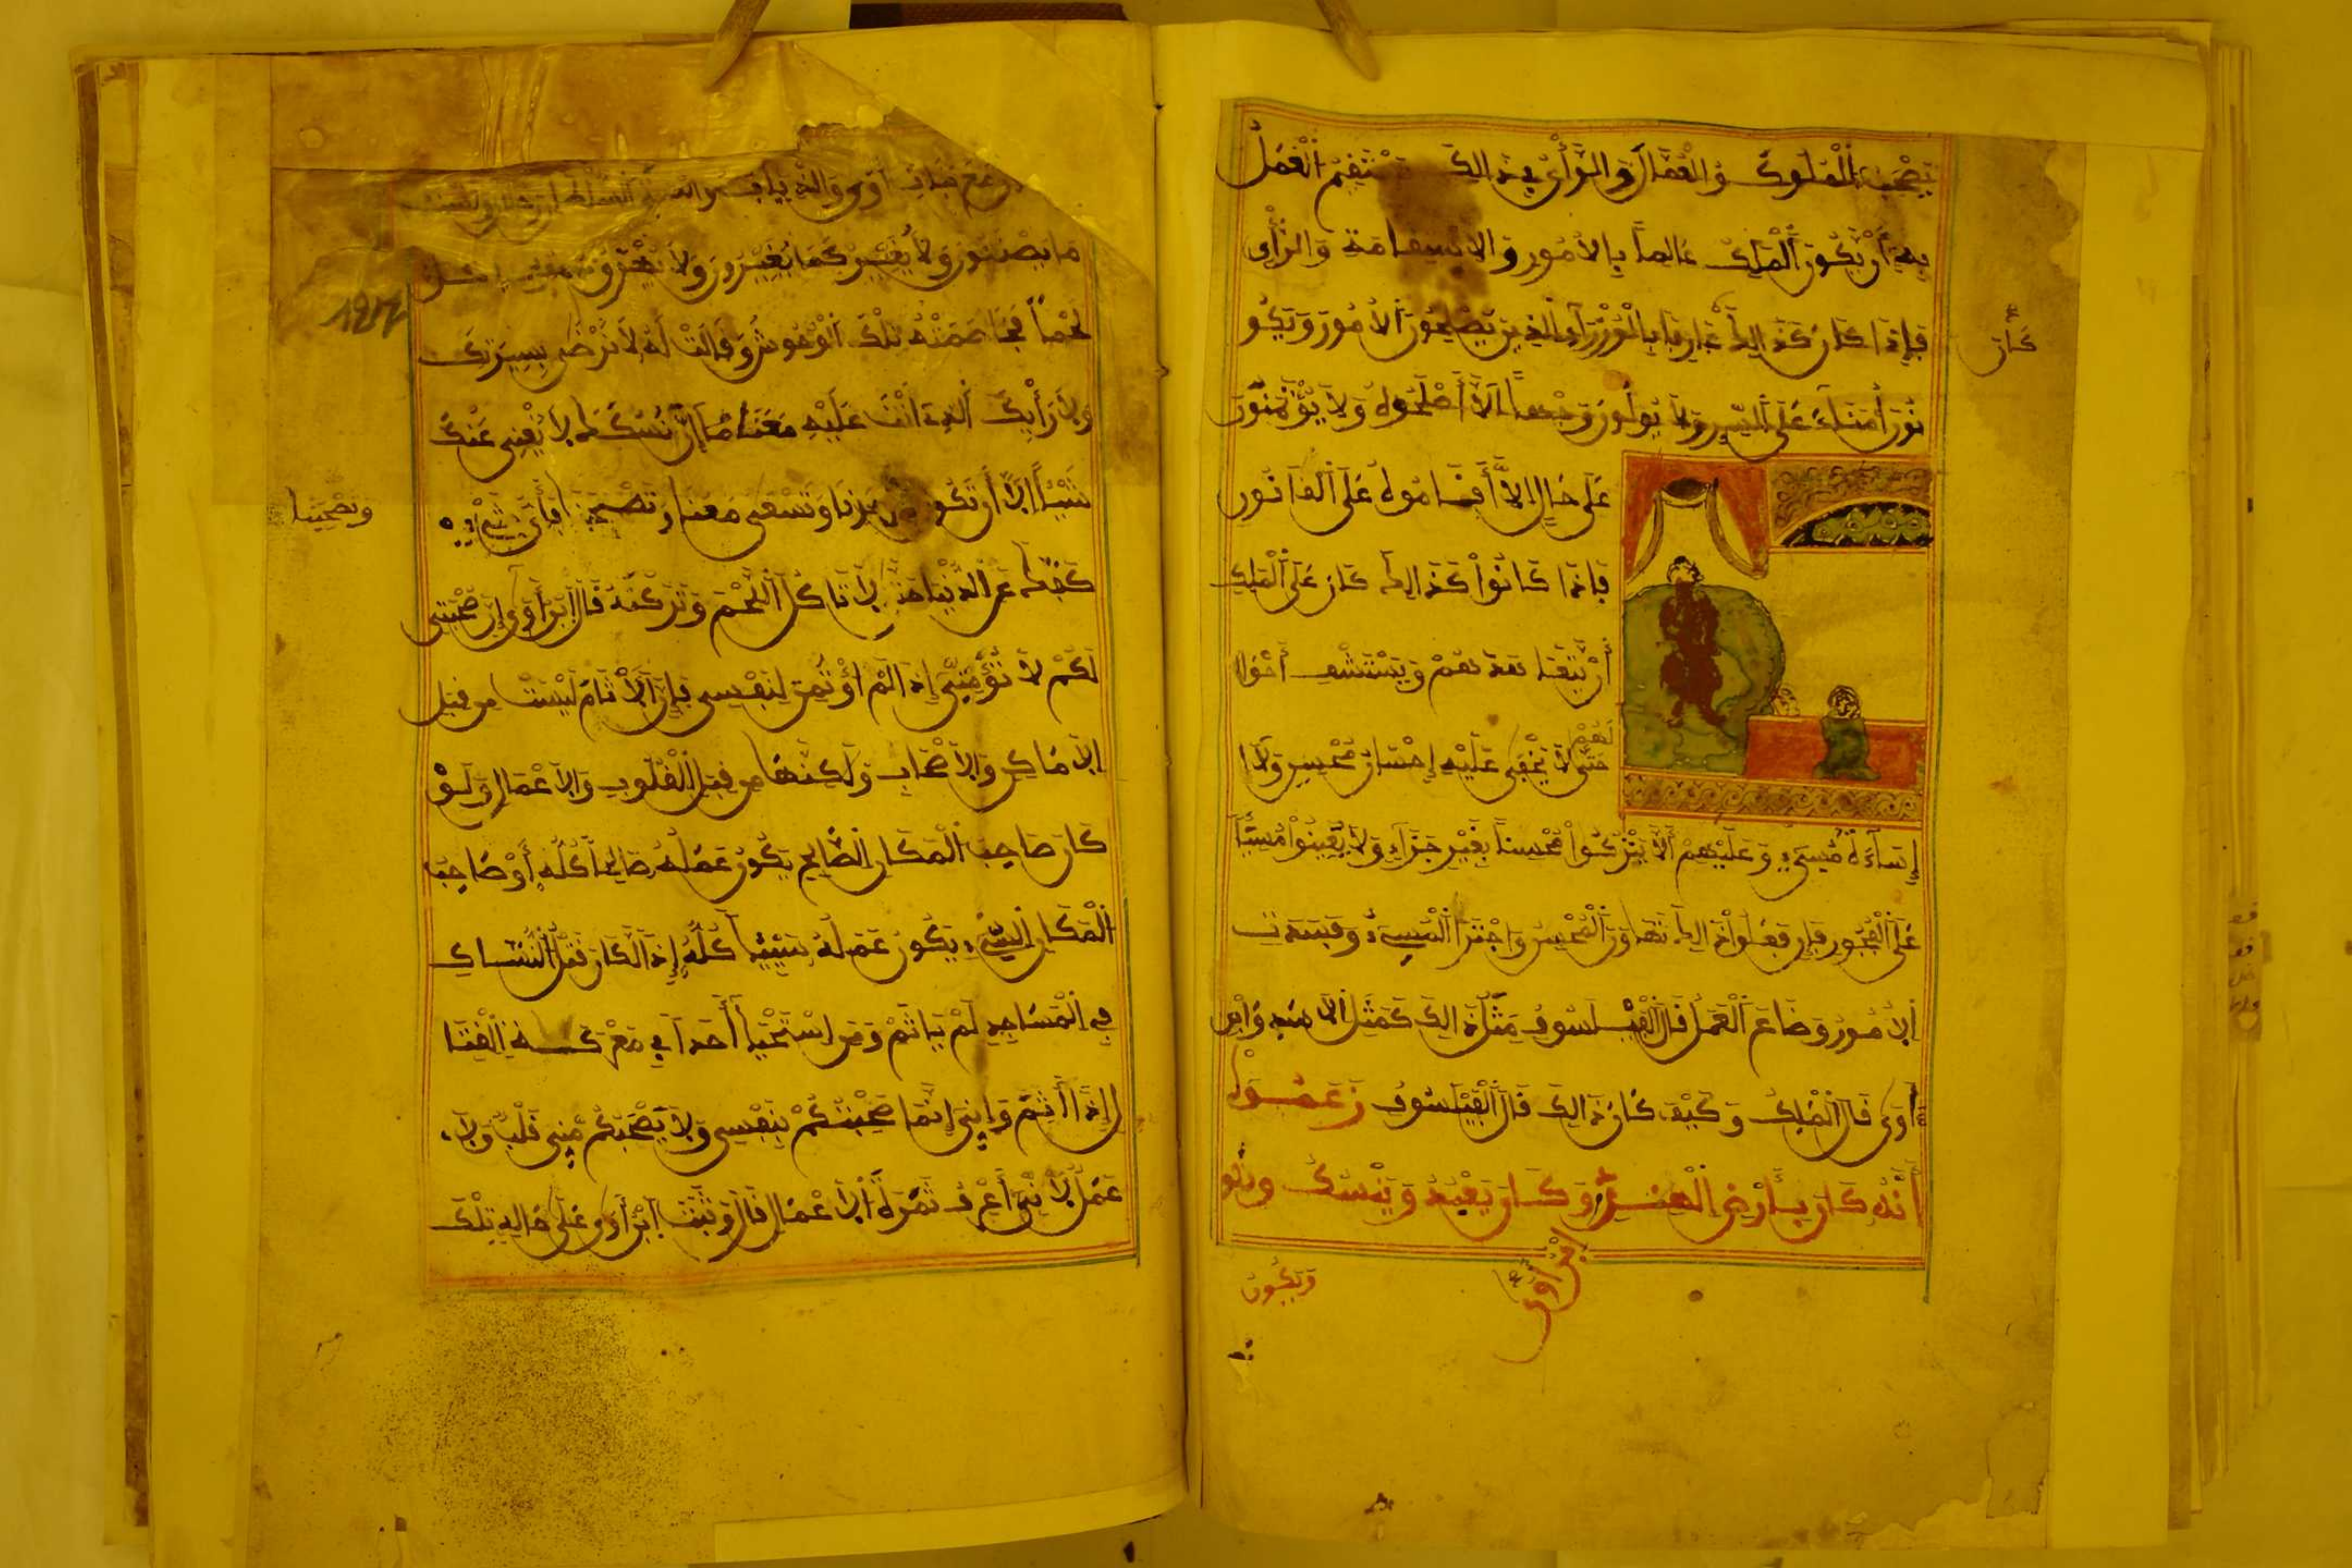 يَصْحَبُ الْمُلُوكُ وُالْعُمَّالَ وَالرَّأْيُ فِي ذَالِكَ يَسْتَقِمُ الْعَمَلُ
بِهِ أَنْ يَكُونَ الْمَلِكُ عَالِماً بِالأُمُورِ وَالاسْتِقَامَةِ وَالرَّأْيِ
فَإِذَا كَانَ كَذَالِكَ عَارِفاً بِالْوُزَرَآءِ الَّذِينَ يُصْلِحُونَ الأُمُورَ وَيَكُو
نُونَ أُمَنَاءَ عَلَى السِّرِّ وَلاَ يُوَلُّونَ وَجْهاً الاَّ أَصْلَحُوهُ وَلاَ يُؤْمَنُونَ
عَلَى حَالٍ الاَّ أَقَامُوهُ عَلَى الْقَانُونِ
فَإِذَا كَانُواْ كَذَالِكَ كَانَ عَلَى الْمَلِكِ
أَنْ يَتَعَاهَدَهُمْ وَيَسْتَشِفَّ أَحْوَا
لَهُمْ
حَتَّى لاَ يَخْفَى عَلَيْهِ إِحْسَانُ مُحْسِنٍ وَلاَ ا
إِسَآءَةُ مُسِيءٍ وَعَلَيْهِمْ أَلاَّ يَتْرُكُواْ مُحْسِناً بِغَيْرِ جَزَآءٍ وَلاَ يُعِينُواْ مُسِيًّا
عَلَى الْفُجُورِ فَإِنْ فَعَلُواْ ذَالِكَ تَهَاوَنَ الْمُحْسِنُ وَاجْتَرَأَ الْمُسِيءُ وَفَسَدَتِ
الأُمُورُ وَضَاعَ الْعَمَلُ قَالَ الْفَيْلَسُوفُ مَثَلُ ذَالِكَ كَمَثَلِ الأَسَدِ وَابْنِ
ءَاوَى قَالَ الْمَلِكُ وَكَيْفَ كَانَ ذَالِكَ قَالَ الْفَيْلَسُوفُ زَعَمُواْ
أَنَّهُ كَانَ بِأَرْضِ الْهِنْدِ وَكَانَ يَعْبُدُ وَيَنْسُكُ
ابْنُ أَوَى
كَانَ
وَيَكُونُ
مَا يَصْنَعُونَ وَلاَ يُغِيرُ كَمَا يُغِيرُونَ وَلاَ يُهْرِقُ دَماً وَلاَ يَاكُلُ
لَحْماً فَخَاصَمَتْهُ تِلْكَ الْوُحُوشُ وَقَالَتْ لَهُ لاَ نَرْضَى بِسِيرَتِكَ
وَلاَ رَأْيِكَ الَّذِي أَنْتَ عَلَيْهِ مَعَنَا إِنَّ نُسُكَكَ لاَ يُغْنِي عَنْكَ
شَيْئاً إِلاَّ أَنْ تَكُونَ كَأَحَدِنَا وَتَسْعَى مَعَنَا فَأَيُّ شَيْءٍ
وَتَصْحَبَنَا
كَفَّكَ عَنِ الدُّنْيَا حَتَّى لاَ تَاكُلَ اللَّحْمَ وَتَرَكْتَهُ قَالَ ابْنُ أَوَى إِنَّ صُحْبَتِي
لَكُمْ لاَ تُؤْثِمُنِي إِذَا لَمْ أُوثِمْ لِنَفْسِي فَإِنَّ الأَثَامَ لَيْسَتْ مِن قِبَلِ
الأَمَاكِنِ وَالأَصْحَابِ وَلَكِنَّهَا مِن قِبَلِ الْقُلُوبِ وَالأَعْمَالِ وَلَوْ
كَانَ صَاحِبُ الْمَكَانِ الصَّالِحِ يَكُونُ عَمَلُهُ صَالِحاً كُلُّهُ أَوْ صَاحِبُ
الْمَكَانِ السَّيِّءِ يَكُونُ عَمَلُهُ سَيِّئاً كُلُّهُ إِذَا لَكَانَ قَتْلُ النُّسَّاكِ
فِي الْمَسَاجِدِ لَمْ يَاثَمْ وَمَنِ اسْتَحْيَا أَحَداً فِي مَعْرَكَةِ الْقِتَا
لِ إِذَا أَثِمَ وَإِنِّي إِنَّمَا صَحِبْتُكُمْ بِنَفْسِي وَلاَ يَصْحَبُكُمْ مِنِّي قَلْبٌ وَلاَ
عَمَلٌ لأَنِّي أَعْرِفُ ثَمَرَةَ الأَعْمَالِ قَالَ وَثَبَتَ ابْنُ أَوَى عَلَى حَالِهِ تِلْكَ